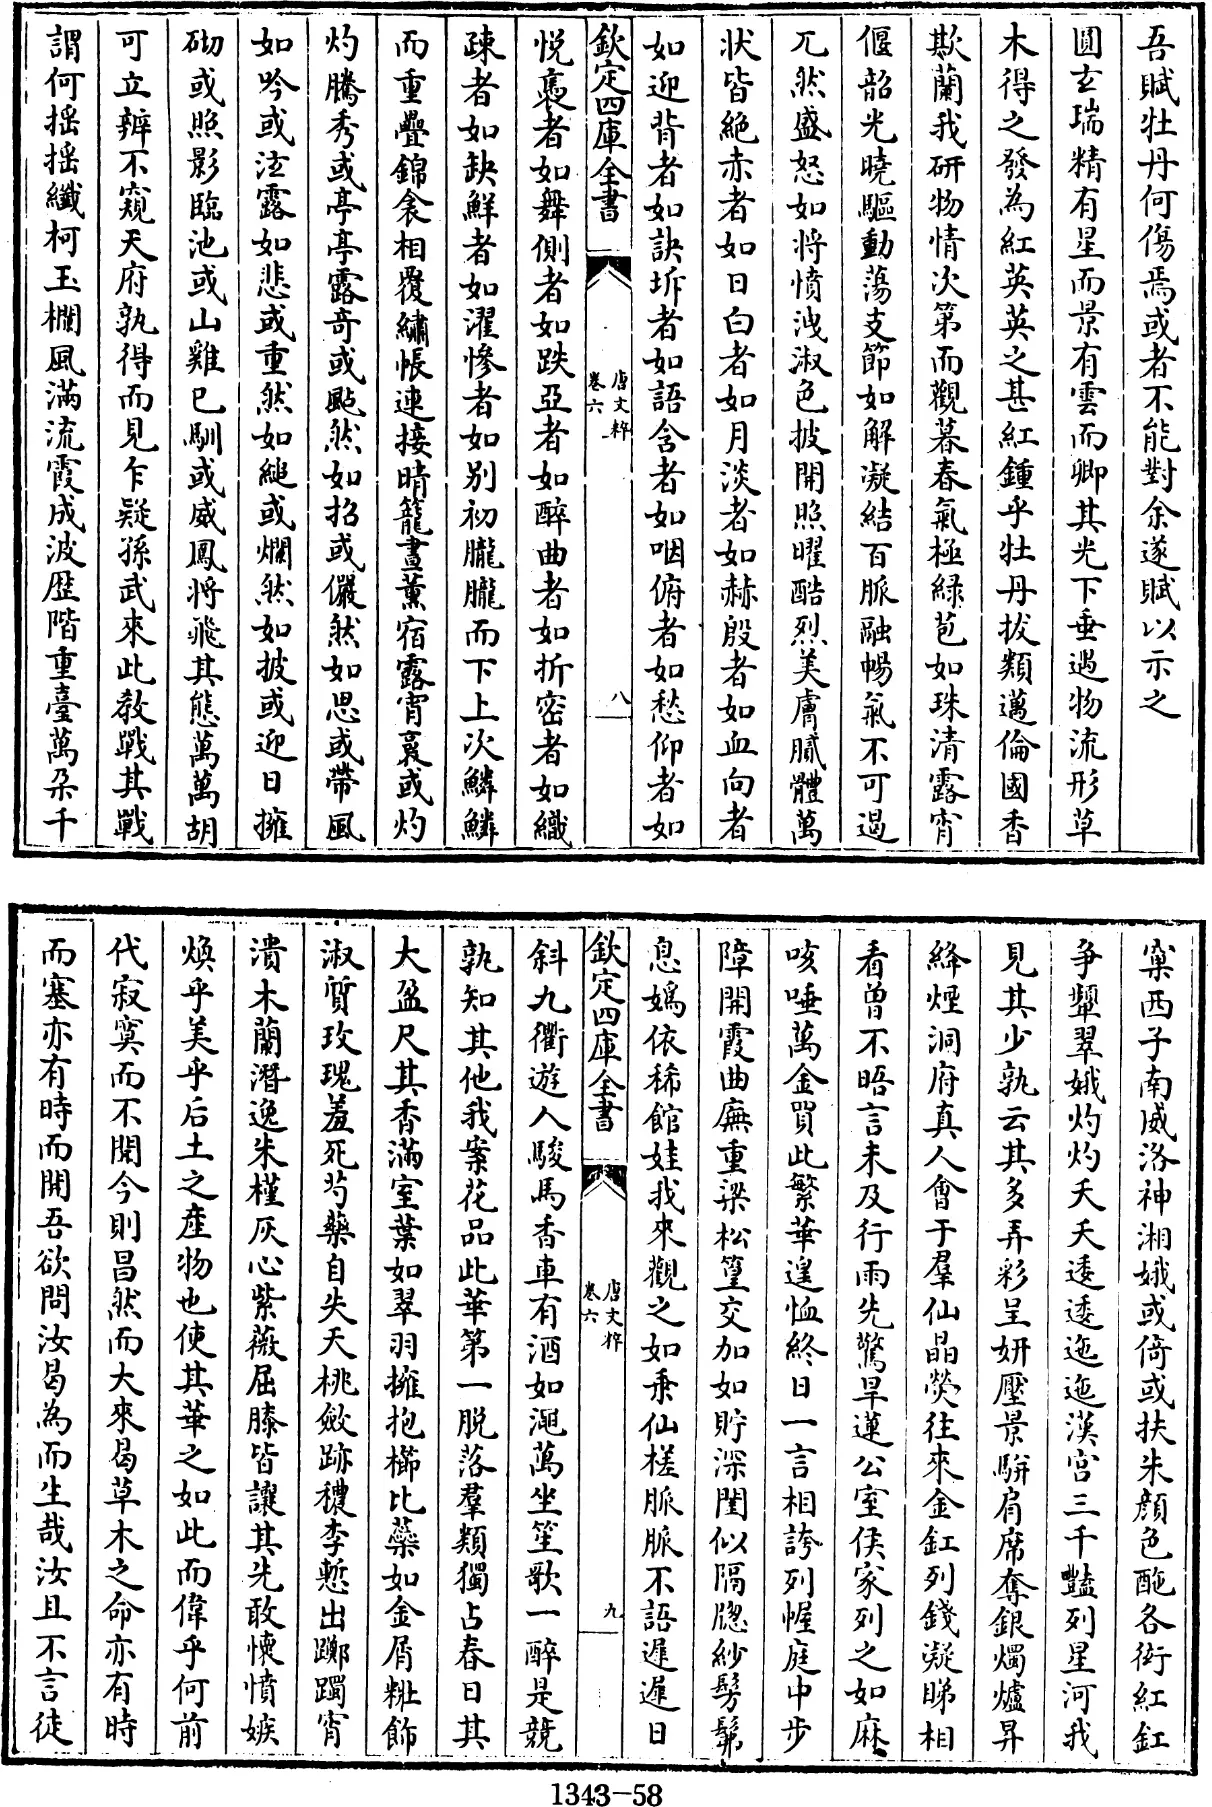 吾賦牡丹何傷焉或者不能對余遂賦以示之
圓玄瑞精有星而景有雲而卿其光下垂遇物流形草
木得之發為紅英英之甚紅鍾乎牡丹拔類邁倫國香
欺蘭我研物情次第而觀暮春氣極緑苞如珠清露宵
偃韶光曉驅動蕩支節如解凝結百脈融暢氣不可遏
兀然盛怒如將憤洩淑色披開照曜酷烈美膚膩體萬
狀皆絶赤者如日白者如月淡者如赫殷者如血向者
如迎背者如訣坼者如語含者如咽俯者如愁仰者如
欽定四庫全書
唐文粹
卷六
八
悦裛者如舞側者如跌亞者如醉曲者如折密者如織
疎者如缺鮮者如濯慘者如别初朧朧而下上次鱗鱗
而重疊錦衾相覆繡帳連接晴籠晝薰宿露宵裛或灼
灼騰秀或亭亭露奇或颭然如招或儼然如思或帶風
如吟或泫露如悲或重然如縋或爛然如披或迎日擁
砌或照影臨池或山雞已馴或威鳳將飛其態萬萬胡
可立辨不窺天府孰得而見乍疑孫武來此教戰其戰
謂何揺揺纖柯玉欄風滿流霞成波歴階重臺萬朶千
窠西子南威洛神湘娥或倚或扶朱顔色酡各衒紅釭
争顰翠娥灼灼夭夭逶逶迤迤漢宮三千豔列星河我
見其少孰云其多弄彩呈妍壓景駢肩席奪銀燭爐昇
絳煙洞府真人會于羣仙晶熒往來金釭列錢凝睇相
看曾不晤言未及行雨先驚旱蓮公室侯家列之如麻
咳唾萬金買此繁華遑恤終日一言相誇列幄庭中步
障開霞曲廡重梁松篁交加如貯深閨似隔牕紗髣髴
息嬀依稀館娃我來觀之如乘仙槎脈脈不語遲遲日
欽定四庫全書
唐文粹
卷六
九
斜九衢遊人駿馬香車有酒如澠萬坐笙歌一醉是競
孰知其他我案花品此華第一脱落羣類獨占春日其
大盈尺其香滿室葉如翠羽擁抱櫛比蘂如金屑粧飾
淑質玫瑰羞死芍藥自失夭桃斂跡穠李慙出躑躅宵
潰木蘭潛逸朱槿灰心紫薇屈膝皆讓其先敢懷憤嫉
焕乎美乎后土之產物也使其華之如此而偉乎何前
代寂寞而不聞今則昌然而大來曷草木之命亦有時
而塞亦有時而開吾欲問汝曷為而生哉汝且不言徒
1343-58